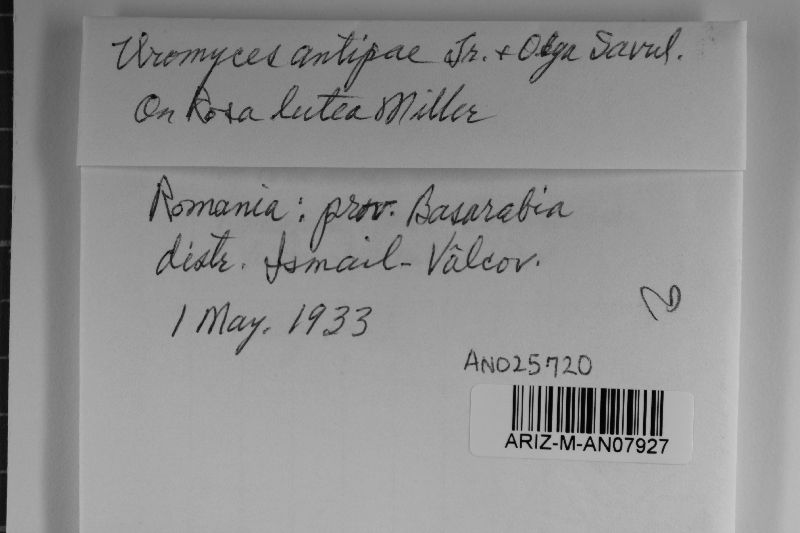 Uromyces antipae Tr. + Olga Savul.
On Rosa lutea Miller
Romania: prov. Basarabia
distr. Ismail - Vâlcov.
1 May. 1933
AN025720
ARIZ-M-AN07927